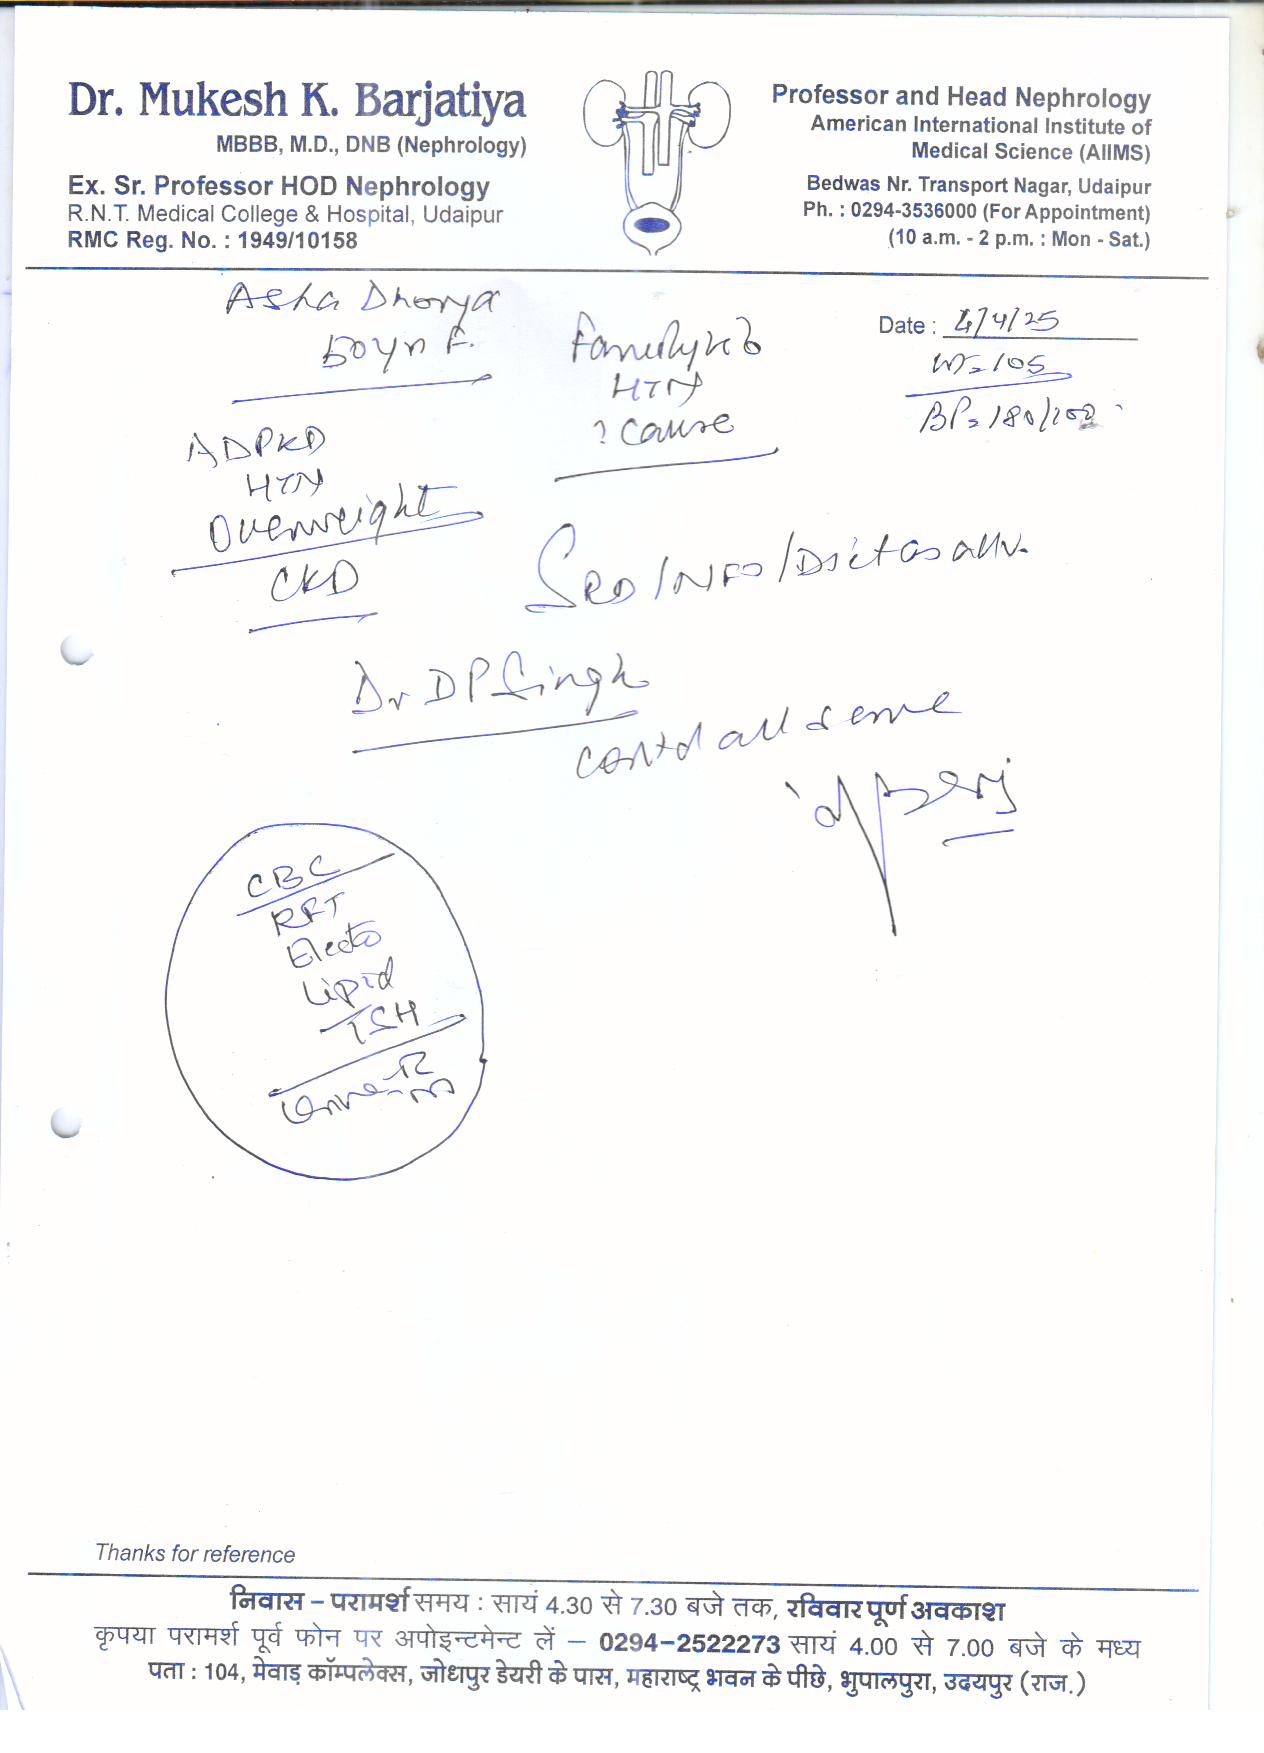 Dr. Mukesh K. Barjatiya
MBBB, M.D., DNB (Nephrology)
Ex. Sr. Professor HOD Nephrology
R.N.T. Medical College & Hospital, Udaipur
RMC Reg. No. : 1949/10158
Professor and Head Nephrology
American International Institute of
Medical Science (AIIMS)
Bedwas Nr. Transport Nagar, Udaipur
Ph. : 0294-3536000 (For Appointment)
(10 a.m. - 2 p.m. : Mon - Sat.)
Asha
F.
Family
HTN
? Cause
Date : 4/4/25
Wt = 105
BP = 180/102
ADPKD
HTN
Overweight
CKD
SRD/NFO/
Dr DP Singh
contd all
CBC
RFT
Electo
Lipid
TSH
Urine
Thanks for reference
निवास – परामर्श समय : सायं 4.30 से 7.30 बजे तक, रविवार पूर्ण अवकाश
कृपया परामर्श पूर्व फोन पर अपोइन्टमेन्ट लें – 0294-2522273 सायं 4.00 से 7.00 बजे के मध्य
पता : 104, मेवाड़ कॉम्पलेक्स, जोधपुर डेयरी के पास, महाराष्ट्र भवन के पीछे, भुपालपुरा, उदयपुर (राज.)